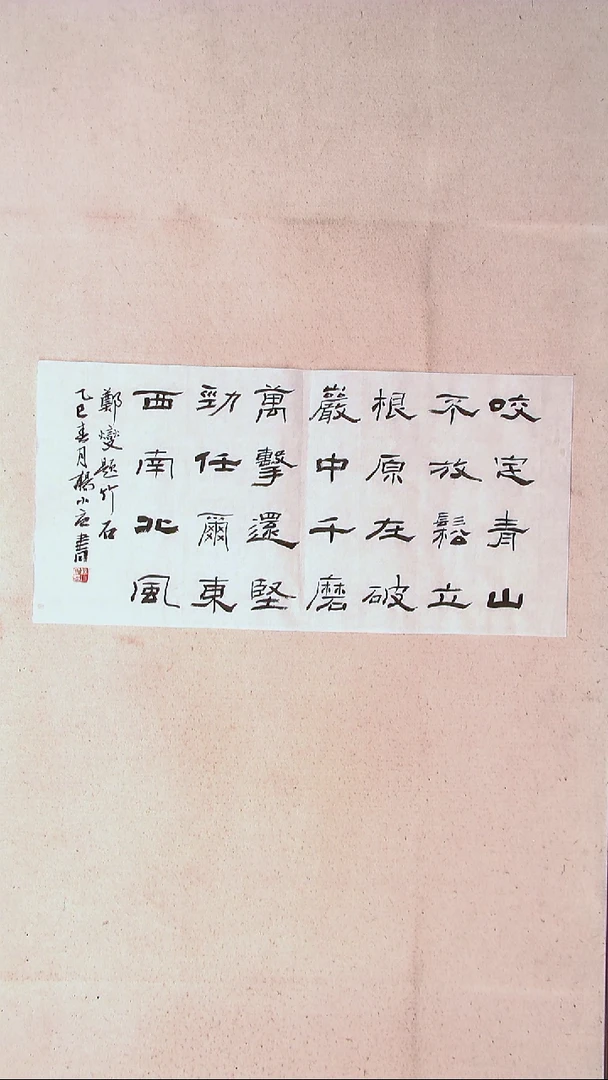 咬定青山
不放鬆立
根原在破
巖中千磨
萬擊還堅
勁任爾東
西南北風
鄭燮題竹石
乙巳春月楊小㐮書